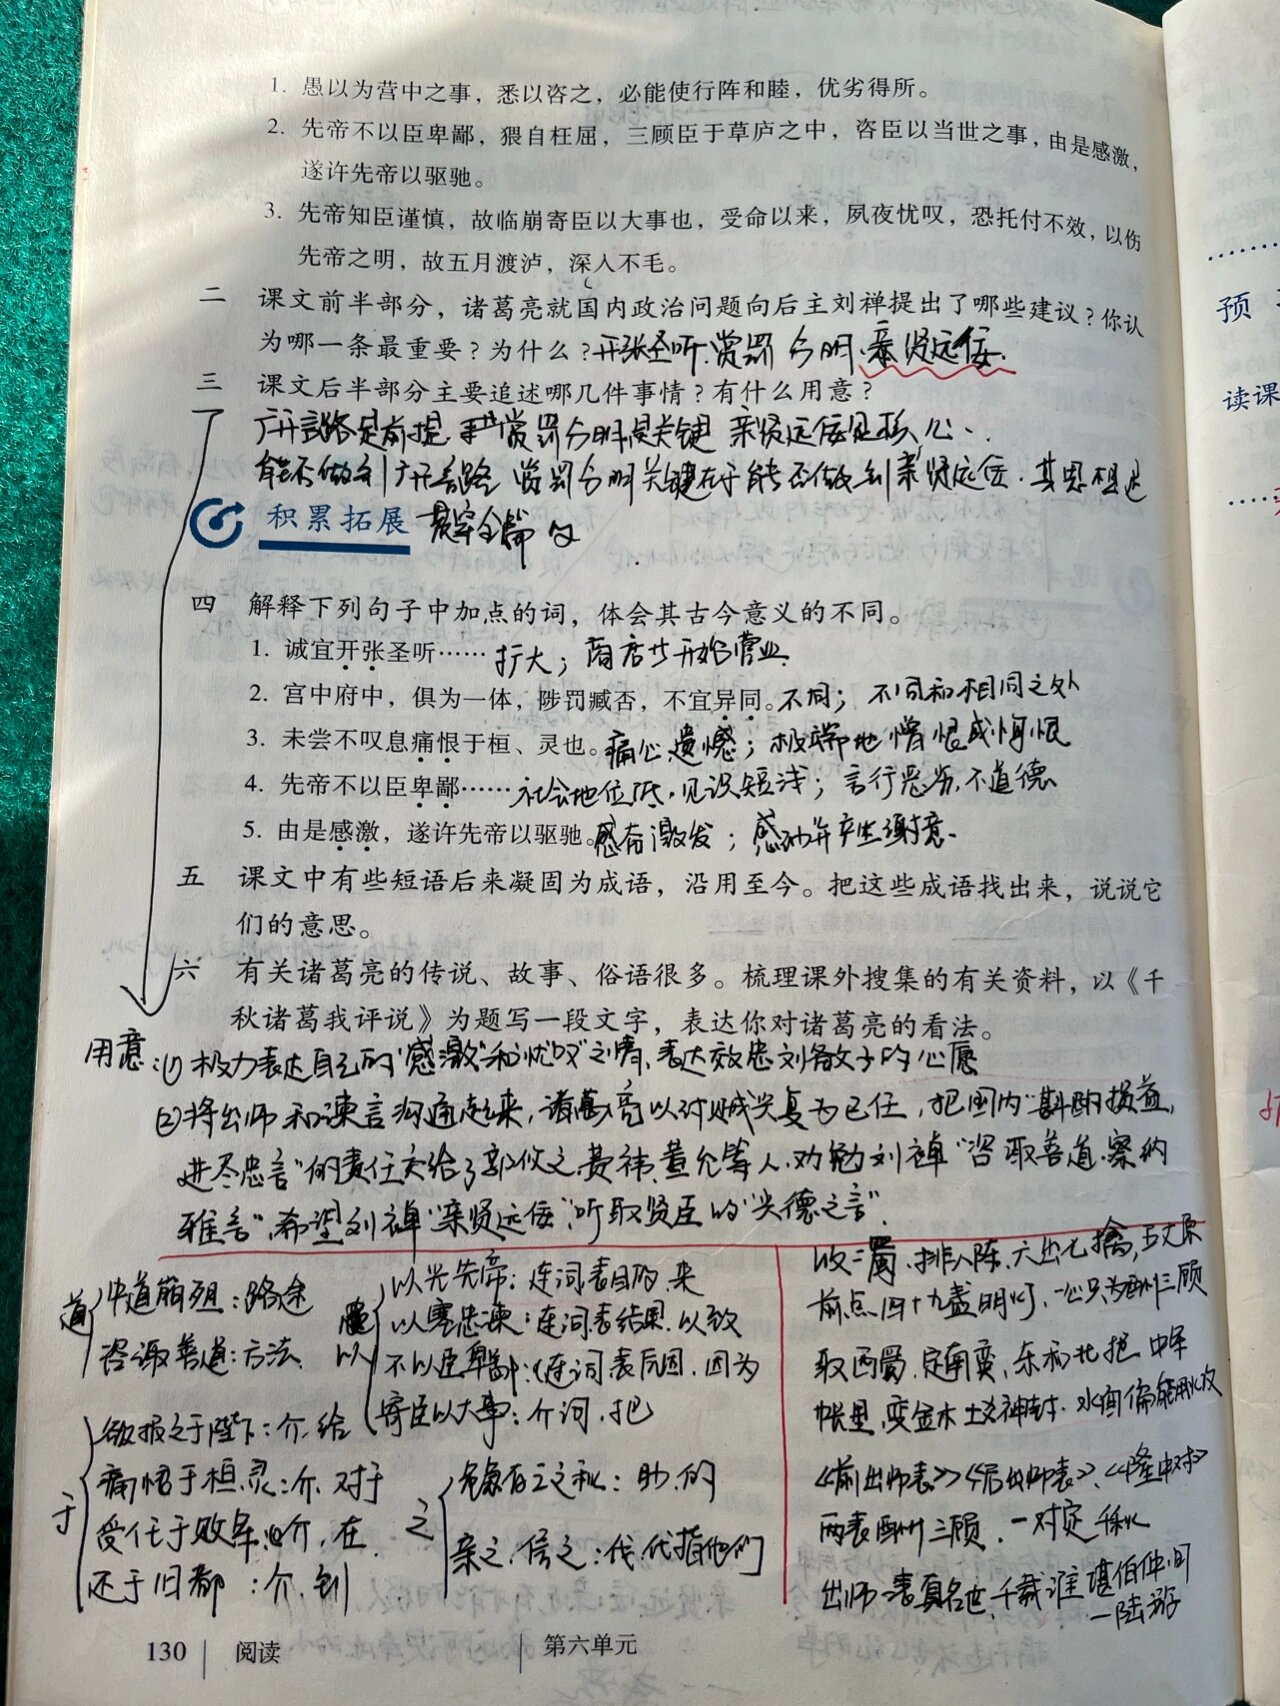 1. 愚以为营中之事，悉以咨之，必能使行阵和睦，优劣得所。
2. 先帝不以臣卑鄙，猥自枉屈，三顾臣于草庐之中，咨臣以当世之事，由是感激，
遂许先帝以驱驰。
3. 先帝知臣谨慎，故临崩寄臣以大事也，受命以来，夙夜忧叹，恐托付不效，以伤
先帝之明，故五月渡泸，深入不毛。
二 课文前半部分，诸葛亮就国内政治问题向后主刘禅提出了哪些建议？你认
为哪一条最重要？为什么？开张圣听、赏罚分明、亲贤远佞.
三 课文后半部分主要追述哪几件事情？有什么用意？
广开言路是前提 赏罚分明是关键 亲贤远佞是核心.
能否做到广开言路 赏罚分明关键在于能否做到亲贤远佞.其思想还
积累拓展 贯穿全篇
四 解释下列句子中加点的词，体会其古今意义的不同。
1. 诚宜开张圣听……扩大；商店开始营业
2. 宫中府中，俱为一体，陟罚臧否，不宜异同。不同；不同和相同之处
3. 未尝不叹息痛恨于桓、灵也。痛心遗憾；极端地憎恨或悔恨
4. 先帝不以臣卑鄙……社会地位低,见识短浅；言行恶劣,不道德
5. 由是感激，遂许先帝以驱驰。感奋激发；感动并产生谢意.
五 课文中有些短语后来凝固为成语，沿用至今。把这些成语找出来，说说它
们的意思。
六 有关诸葛亮的传说、故事、俗语很多。梳理课外搜集的有关资料，以《千
秋诸葛我评说》为题写一段文字，表达你对诸葛亮的看法。
用意:① 极力表达自己的"感激"和"忧叹"之情,表达效忠刘备父子的心愿
②将出师和谏言沟通起来,诸葛亮以讨贼兴复为己任,把国内"斟酌损益,
进尽忠言"的责任交给了郭攸之,费祎,董允等人.劝勉刘禅"咨诹善道.察纳
雅言",希望刘禅"亲贤远佞",听取贤臣的"兴德之言".
道 中道崩殂:路途
咨诹善道:方法
以 以光先帝:连词表目的,来
以塞忠谏:连词表结果,以致
不以臣卑鄙:连词,表原因,因为
寄臣以大事:介词,把
于 欲报之于陛下:介,给
痛恨于桓灵:介,对于
受任于败军:介,在
还于旧都:介,到
之 危急存亡之秋:助,的
亲之,信之:代,代指他们
收二蜀,排八阵,六出七擒,五丈原
前点四十九盏明灯,一心只为酬三顾
取西蜀,定南蛮,东和北拒,中军
帐里,变金木土爻神卦,水面偏能用火攻
《前出师表》《后出师表》、《隆中对》
两表酬三顾.一对定千秋
出师一表真名世,千载谁堪伯仲间
—陆游
130 阅读 第六单元
预
读课